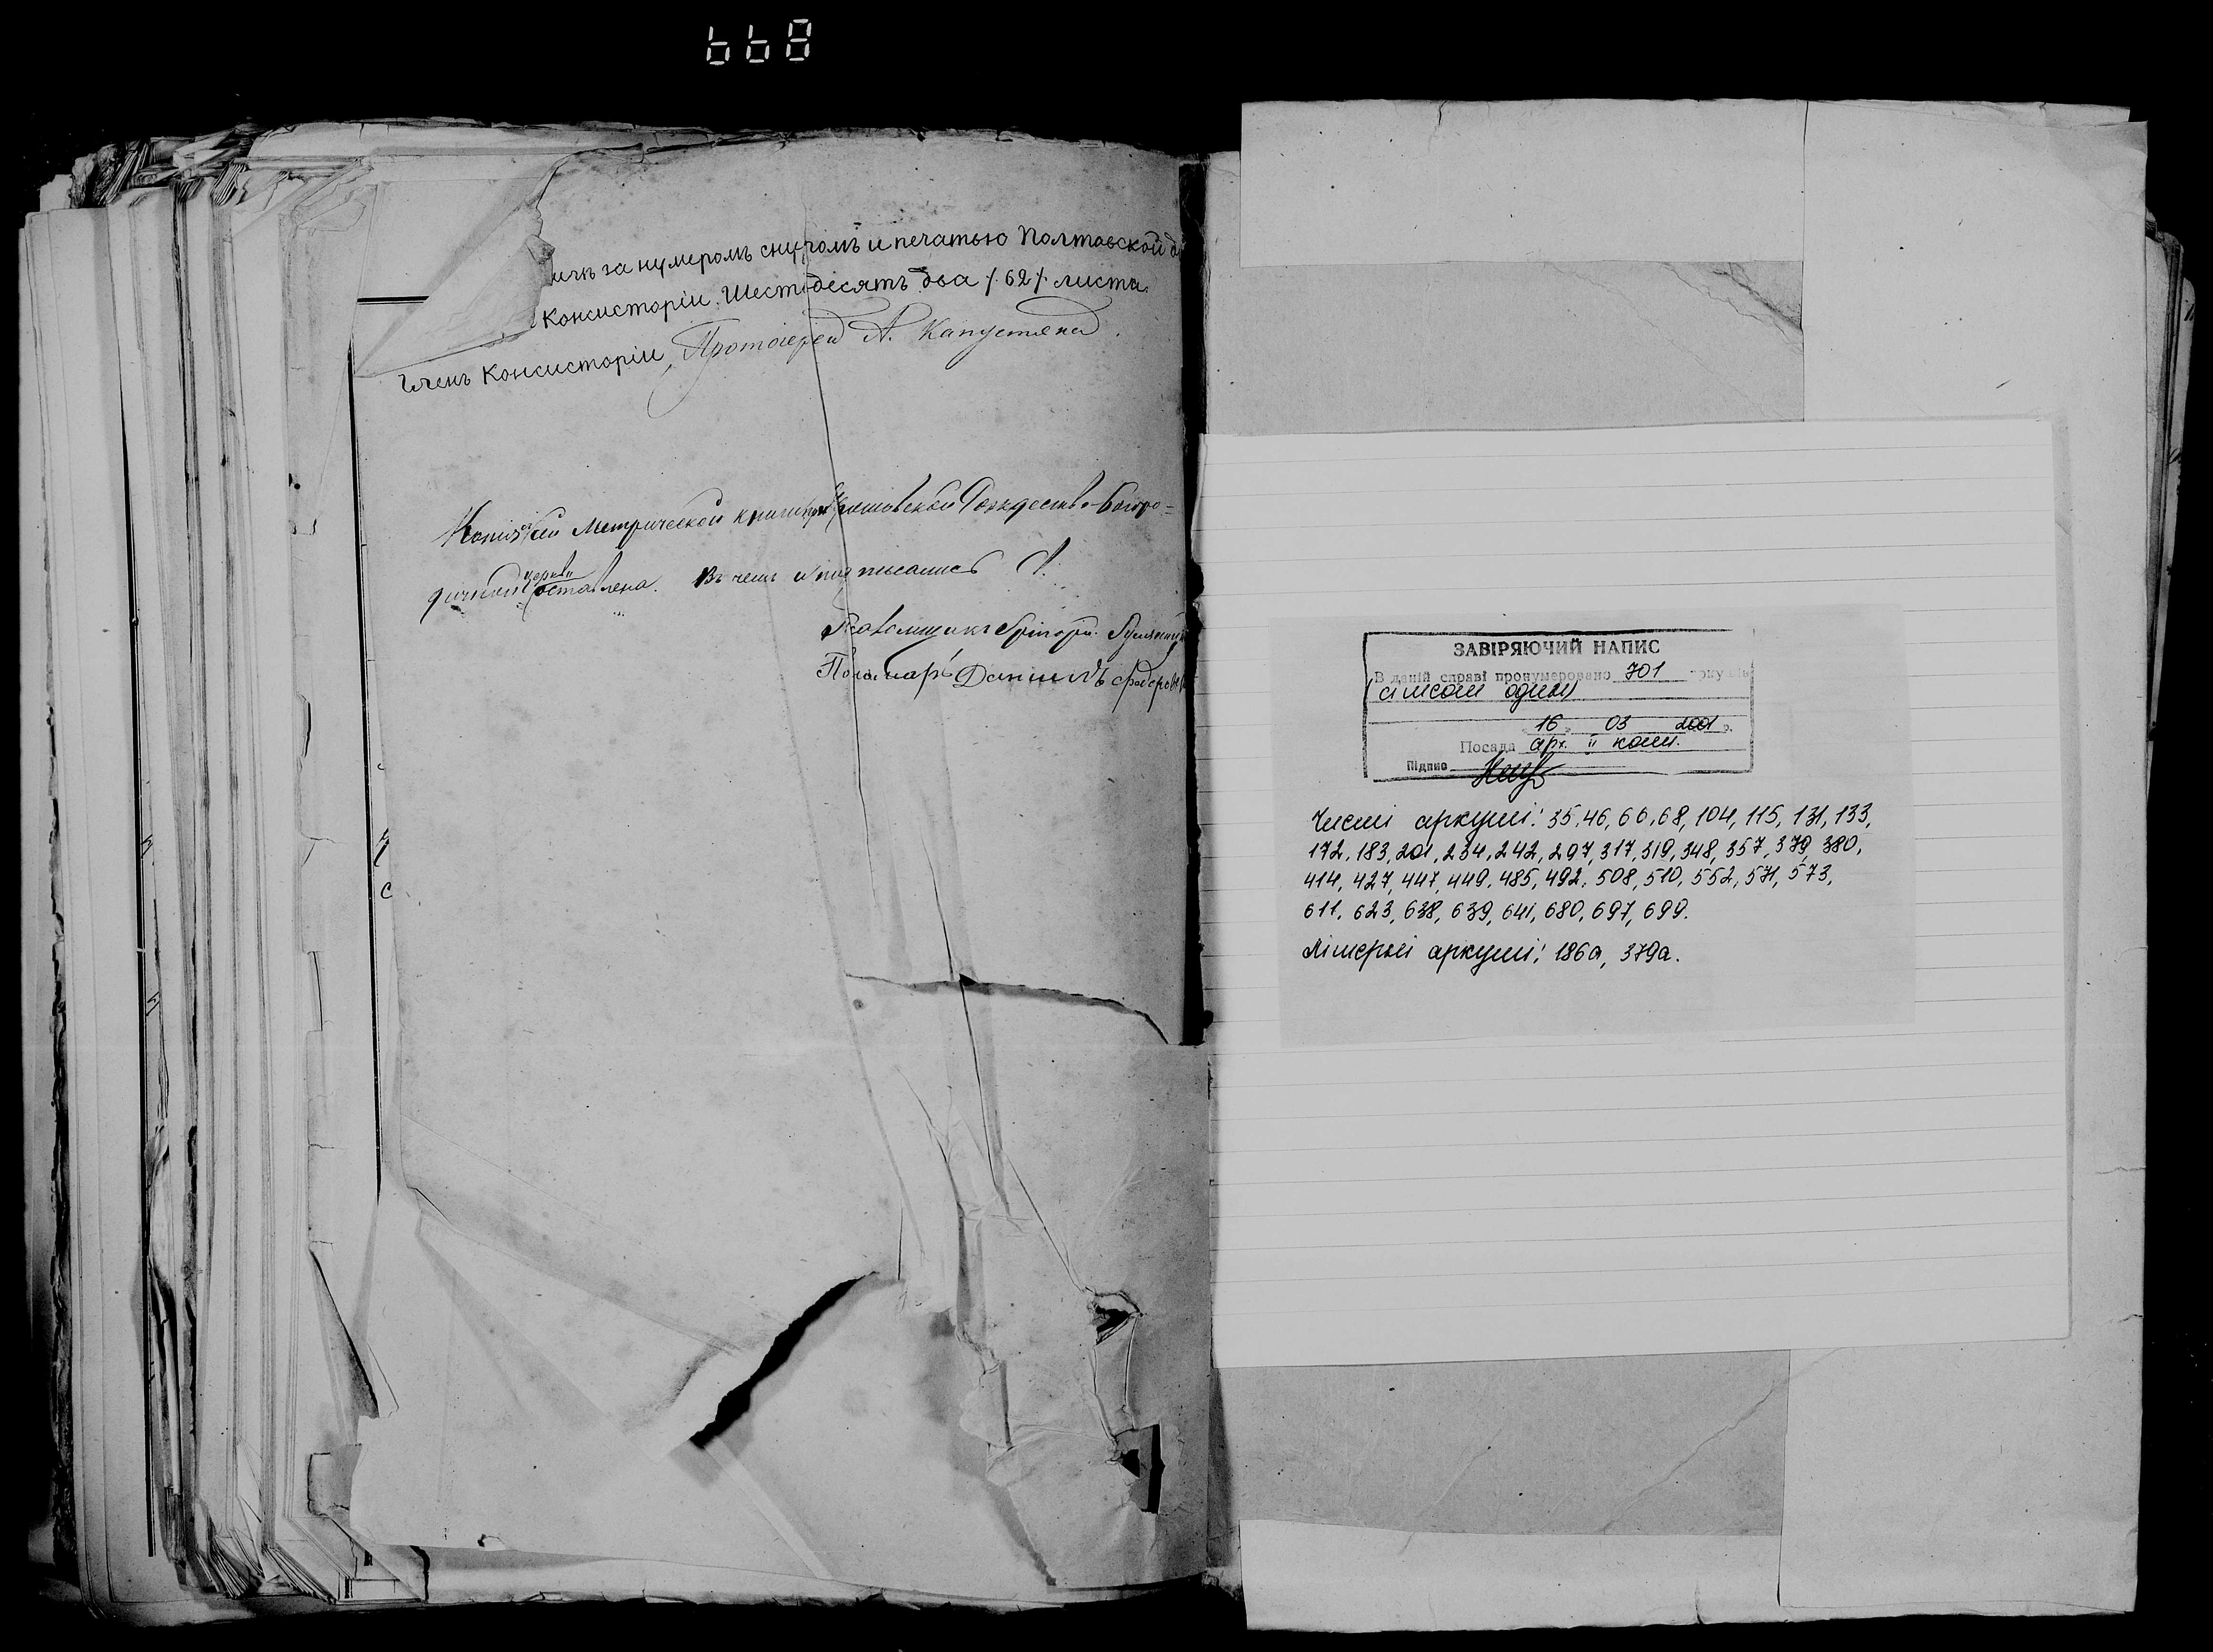 668
ичъ за нумеромъ снуромъ и печатью Полтавской д
Консисторіи, Шестьдесятъ два /.62/. листа.
Членъ Консисторіи, Протоіерей А. Капустянс
Копія сей Метрической книги при Рождество-Богоро=
дичной церкви оставлена. Въ чемъ и подписались
Псаломщикъ Григорій
Пономарь Даніилъ Федоров
ЗАВІРЯЮЧИЙ НАПИС
В даній справі пронумеровано 701 аркушів
(сімсот один)
16 03 2001 р.
Посада арх. II кат.
Підпис
Чисті аркуші: 35, 46, 66, 68, 104, 115, 131, 133,
172, 183, 201, 234, 242, 297, 317, 319, 348, 357, 379, 380,
414, 427, 447, 449, 485, 492, 508, 510, 552, 571, 573,
611, 623, 638, 639, 641, 680, 697, 699.
Літерні аркуші: 186а, 379а.